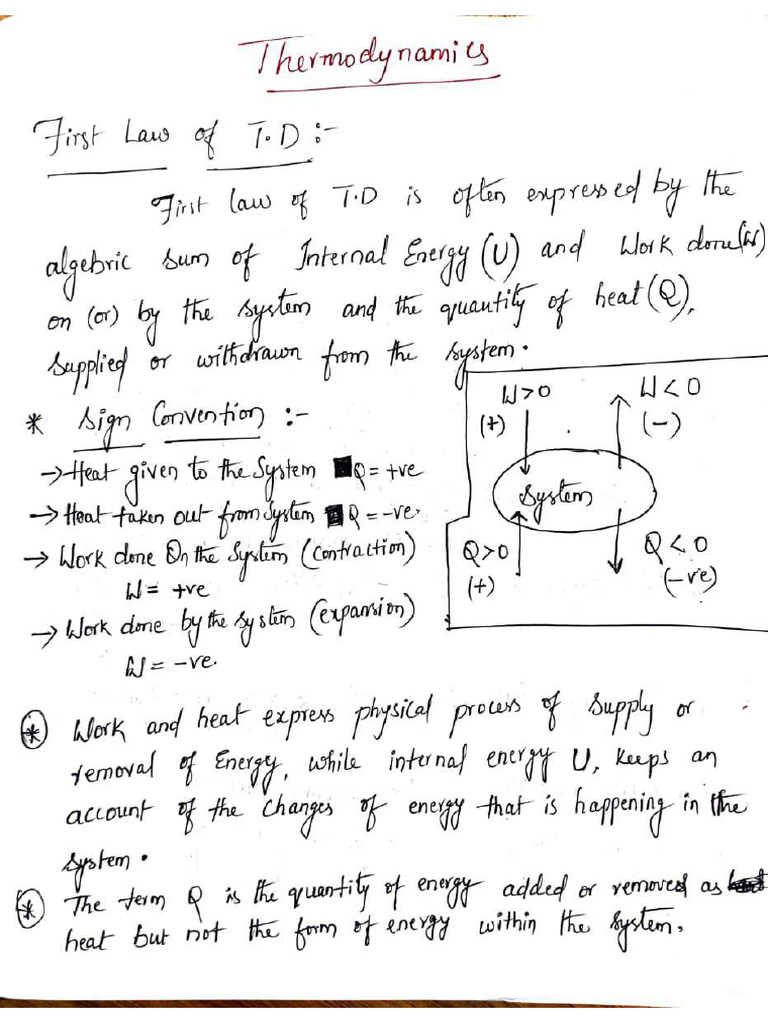 Thermodynamics
First Law of T.D :-
First law of T.D is often expressed by the
algebric sum of Internal Energy (U) and Work done (W)
on (or) by the system and the quantity of heat (Q),
supplied or withdrawn from the system.
* Sign Convention :-
→ Heat given to the System Q = +ve
→ Heat taken out from System Q = -ve.
→ Work done On the System (Contraction)
W = +ve
→ Work done by the system (expansion)
W = -ve.
W>0
(+)
W<0
(-)
System
Q>0
(+)
Q<0
(-ve)
* Work and heat express physical process of supply or
removal of Energy, while internal energy U, keeps an
account of the changes of energy that is happening in the
system.
* The term Q is the quantity of energy added or removed as
heat but not the form of energy within the system.